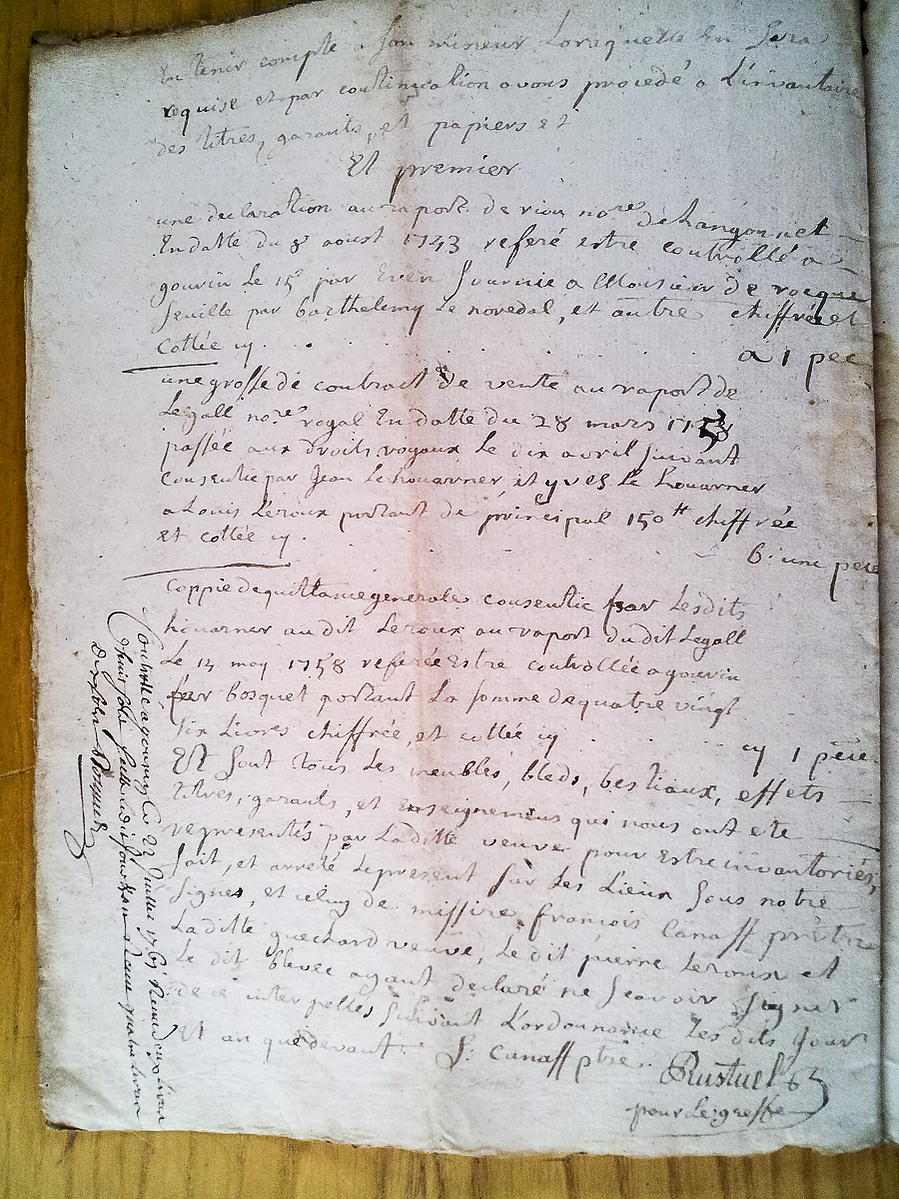 En tenir compte a son mineur Lorsquelle En Sera
requise et par continuation avons procedé a L'invantaire
des titres, garants, et papiers et
Et premier
une declaration au raport de viou no.re de Langonnet
En datte du 8 aoust 1743 referé estre controllé a
gourin Le 15e par Even fournie a Monsieur de roque
feuille par barthelemy Le noredal, et autre chiffrée et
Cottée
a 1 pee
une grosse de contract de vente au raport de
Le gall no.re royal En datte du 28 mars 1758
passée aux droits royaux Le dix avril suivant
consentie par Jean Le houarner et yves Le houarner
a Louis Leroux portant de principal 150tt chiffrée
et cottée
6: une peie
Coppie de quittance generale consentie par Lesdits
houarner au dit Leroux au raport du dit Legall
Le 13 may 1758 referée Estre controllée a gourin
par bosquet portant La somme de quatre vingt
six Livres chiffrée, et cottée
1 peie
Et Sont tous Les meubles, bleds, bestiaux, effets
titres, garants, et Enseignemens qui nous ont ete
representés par Laditte veuve pour Estre invantoriés,
fait, et arreté Lepresent sur Les Lieux sous notre
signe, et celuy de missire françois Canaff prêtre
Laditte guechard veuve, Le dit pierre Leroux et
Le dit blevec ayant declaré ne scavoir signer
de ce interpellés suivant L'ordonnance Les dits Jour
Et an que devant. f: Canaff ptre..
Rustuel
pour Le greffe
Controllé a gourin Le 22 Juillet 1763